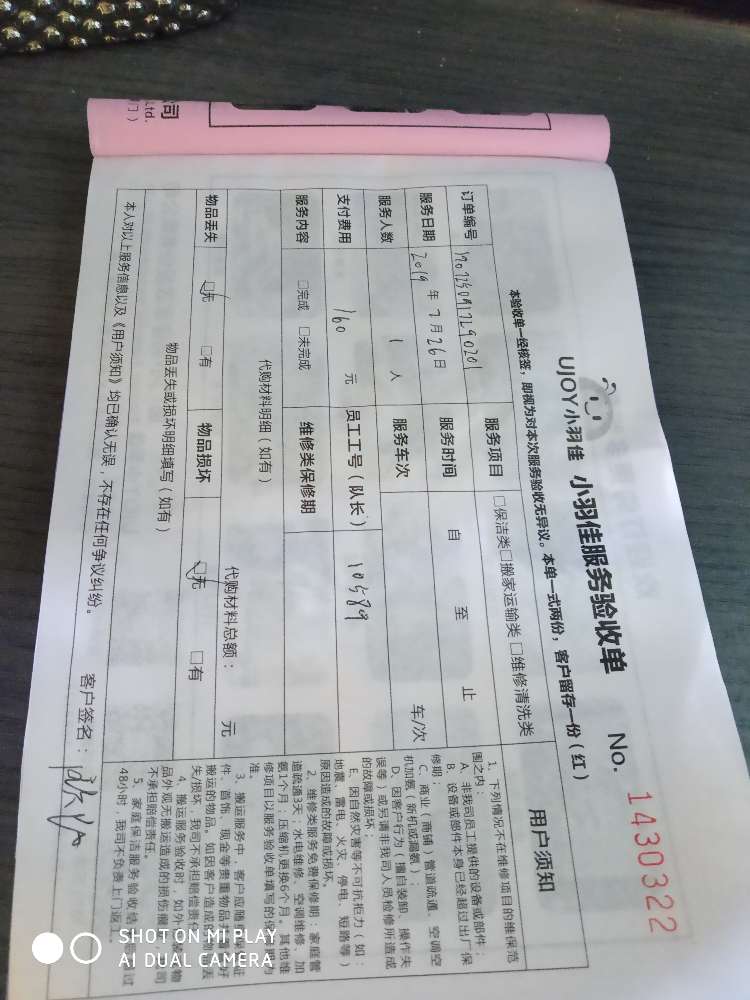 司
Ltd.
UJOY小羽佳 小羽佳服务验收单 No. 1430322
本验收单一经核签，即视为对本次服务验收无异议。本单一式两份，客户留存一份（红）
订单编号 服务项目 □保洁类□搬家运输类□维修清洗类
服务日期 2019 年 7 月 26 日 服务时间 自 至 止
服务人数 1 人 服务车次 车/次
支付费用 160 元 员工工号（队长） 10589
服务内容 □完成 □未完成 维修类保修期
代购材料明细（如有） 代购材料总额： 元
物品丢失 □无 □有 物品损坏 □无 □有
物品丢失或损坏明细填写（如有）
本人对以上服务信息以及《用户须知》均已确认无误，不存在任何争议纠纷。 客户签名：
用户须知
1、下列情况不在维修项目的维保范
围之内：
A、非我司员工提供的设备或部件；
B、设备或部件本身已经超过出厂保
修期；
C、商业（商铺）管道疏通、空调空
机加氨（新机或漏氨）；
D、因客户行为（擅自装卸、操作失
误等）或另请非我司人员检修所造成
的故障或损坏；
E、因自然灾害等不可抗拒力（如：
地震、雷电、火灾、停电、短路等）
原因造成的故障或损坏。
2、维修类服务免费保修期：家庭管
道疏通3天；水电维修、空调维修、加
氨1个月，压缩机更换6个月。其他维
修项目以服务验收单填写的保修期为
准。
3、搬运服务中，客户应随身保管证
件、首饰、现金等贵重物品并
搬运的物品。如因客户造成的
失/损坏，我司不承担赔偿责
4、搬运服务验收时，如外包装
品外观无搬运造成的损伤痕
不承担赔偿责任。
5、家庭保洁服务验收结
48小时，我司不负责上门返工。
SHOT ON MI PLAY
AI DUAL CAMERA